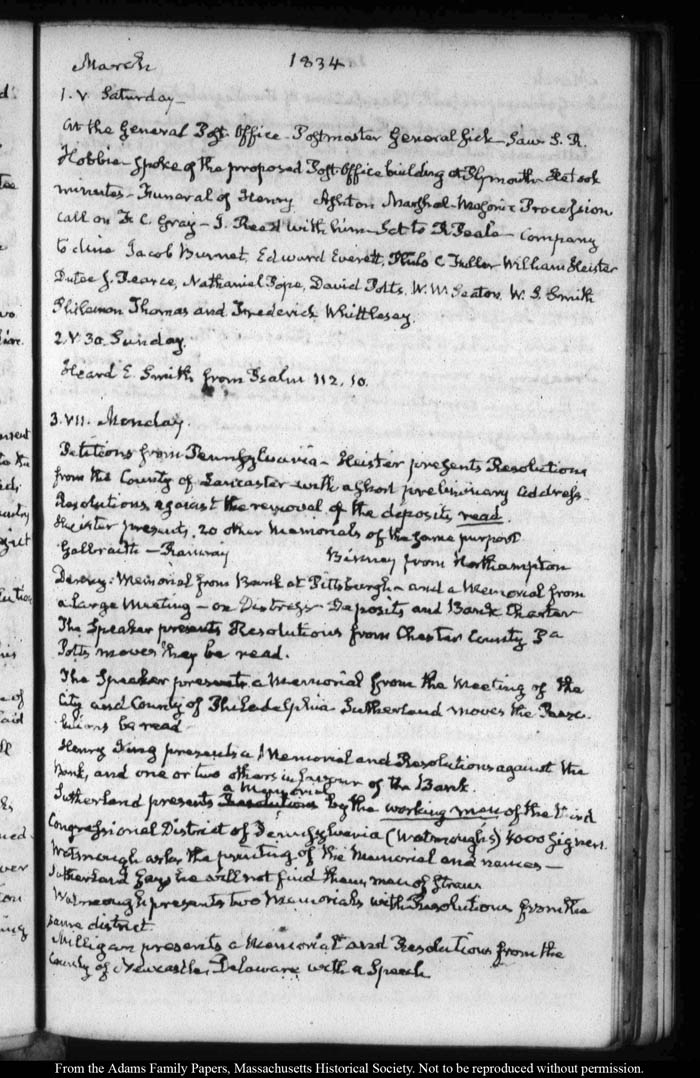 March 1834
1. V Saturday—
At the General Post Office—Postmaster General sick—Saw S. R.
Hobbie—Spoke of the proposed Post-Office building at Plymouth
minutes—Funeral of Henry Ashton Marshal—Masonic Procession
call on F. C. Gray—I. Read with him—Sat to R Peale—Company
to dine Jacob Burnet, Edward Everett, Philo C Fuller William Heister
Dutee J. Pearce, Nathaniel Pope, David Potts, W. W. Seaton, W. S. Smith
Philemon Thomas and Frederick Whittlesey.
2. V 30. Sunday.
Heard E. Smith from Psalm 112. 10.
3. VII. Monday.
Petitions from Pennsylvania—Heister presents Resolutions
from the County of Lancaster—with a short preliminary address.
Resolutions against the removal of the deposits read.
Heister presents, 20 other Memorials of the same purport
Galbraith—Ramsay Birney from Northampton
Denny. Memorial from Bank at Pittsburgh—and a Memorial from
a large Meeting—on Distress—Deposits and Bank Charter
The Speaker presents Resolutions from Chester County Pa
Potts moves they be read.
The Speaker presents a Memorial from the Meeting of the
City and County of Philadelphia Sutherland moves the Reso-
lutions be read—
Henry King presents a Memorial and Resolutions against the
Bank, and one or two others in favour of the Bank.
Sutherland presents Resolutions a Memorial by the working men of the third
Congressional District of Pennsylvania (Watmough's) 4000 signers.
Watmough asks the printing of the Memorial and names—
Sutherland says he will not find them men of Straw
Watmough presents two Memorials with Resolutions from the
same district.
Milligan presents a Memorial and Resolutions from the
County of Newcastle, Delaware with a Speech
From the Adams Family Papers, Massachusetts Historical Society. Not to be reproduced without permission.